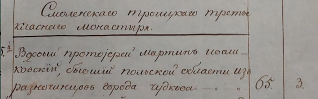 Смоленскаго троицкаго третье
класнаго монастыря.
5. Вдовый протоіерей мартинъ
ковскій, бывшей польской области изъ
разночинцовъ города 65. 3.